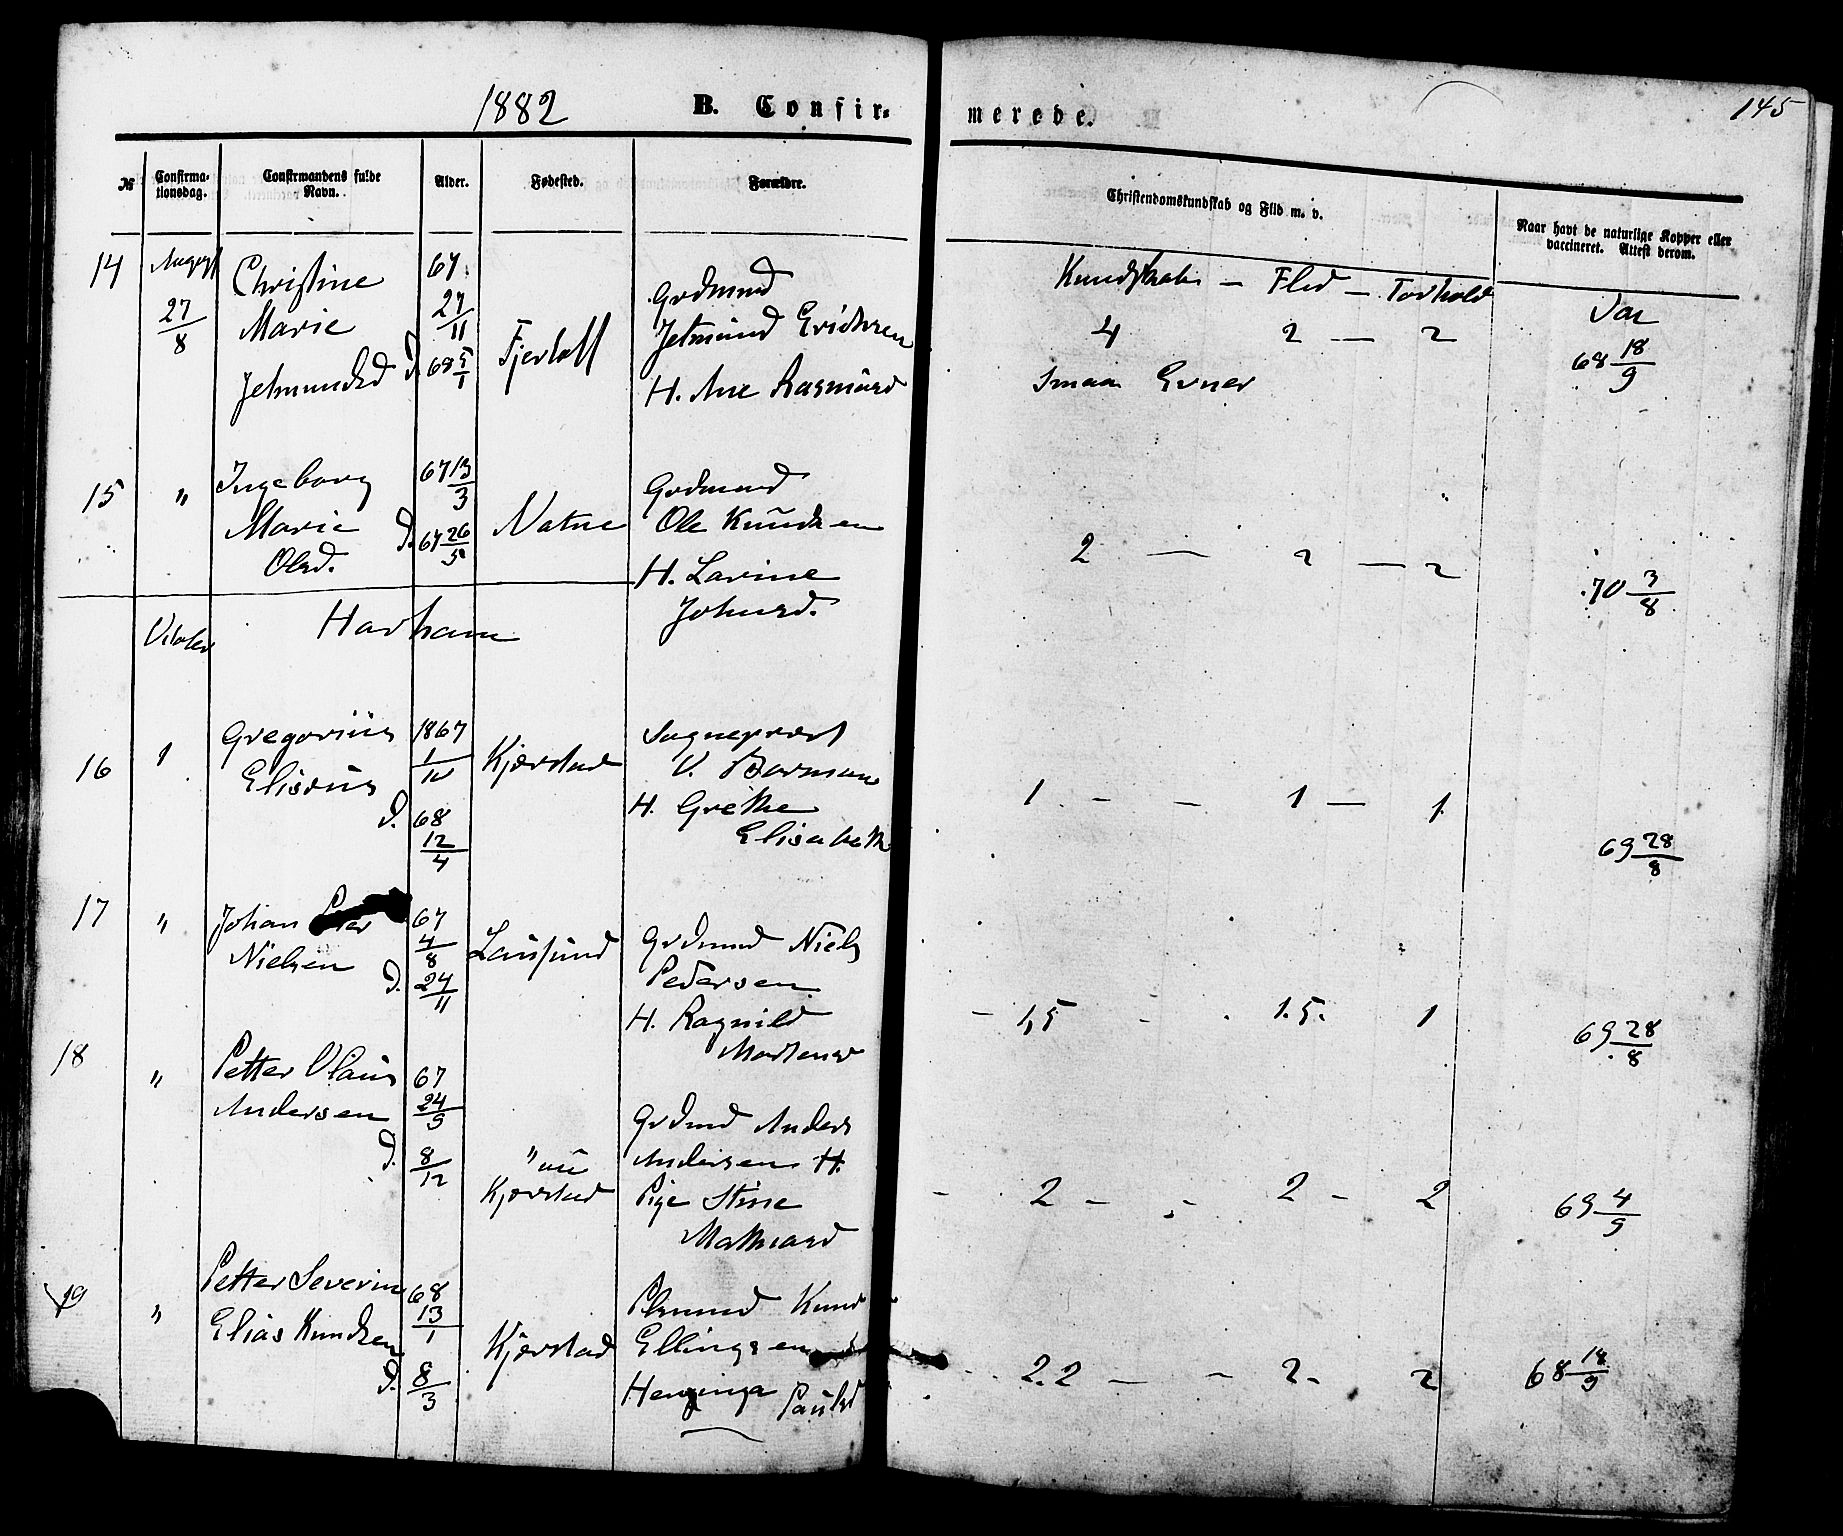 1882 B. Confir-
merede. 145
№ Confirma-
tionsdag. Confirmandens fulde
Navn. Alder. Fødested. Forældre.
Christendomskundskab og Flid m. v. Naar havt de naturlige Kopper eller
vaccineret. Attest derom.
14 August Christine 67 Grdmand Kundskab – Flid – Forhold Var
27/8 Marie 27/11 Fjertoft Jetmund Erichsen 4 2 — 2 68 18/9
Jetmundsd D. 68 5/1 H. Ane Rasmusd Smaa Evner
15 " Ingeborg 67 13/3 Grdmand
Marie D. 67 26/5 Vatne Ole Knudsen 2 — 2 — 2
Olsd. H. Lavine 70 3/8
Johnsd.
Harham
16 Gregorius 1867 Sogneprest
Elisæus 1/10 Kjærstad V. Barman 1 - - 1 — 1
D. 68 H. Grethe
12/4 Elisabeth 69 28/8
17 " Johan 67
Nielsen 4/8 Grdmand Niels
D. 24/11 Pedersen
H. Ragnild 1,5 1.5. 1 69 28/8
18 Martensd
" Petter Olaus 67
Andersen 24/9 Grdmd Anders
D. 8/12 " Andersen H.
Kjærstad Pige Stine 2 - - 2 - 2 69 4/9
Mathiasd
19 " Petter Severin 68
Elias Knudsen 13/1 Knud
Kjærstad Ellingsen
D. 8/3 Paulsd 2.2 — - 2- 2 68 18/9